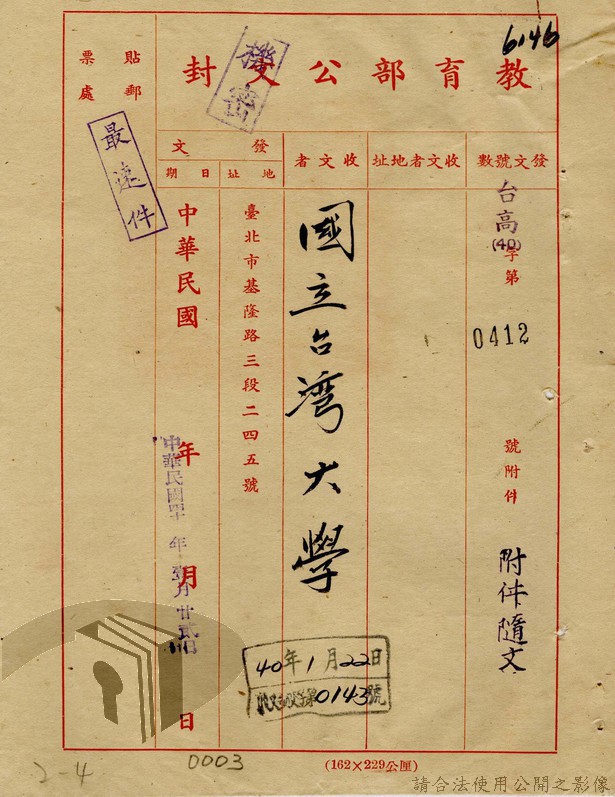 6146
教育部公文封
機密
貼郵票處
最速件
發文號數
收文者地址
收文者
發文
地址
日期
台高
(40)字第
0412
號附件
附件隨文
國立台灣大學
臺北市基隆路三段二四五號
中華民國 年 月 日
中華民國四十年 月廿贰日
40年1月22日
0143號
2-4
0003
(162×229公厘)
請合法使用公開之影像